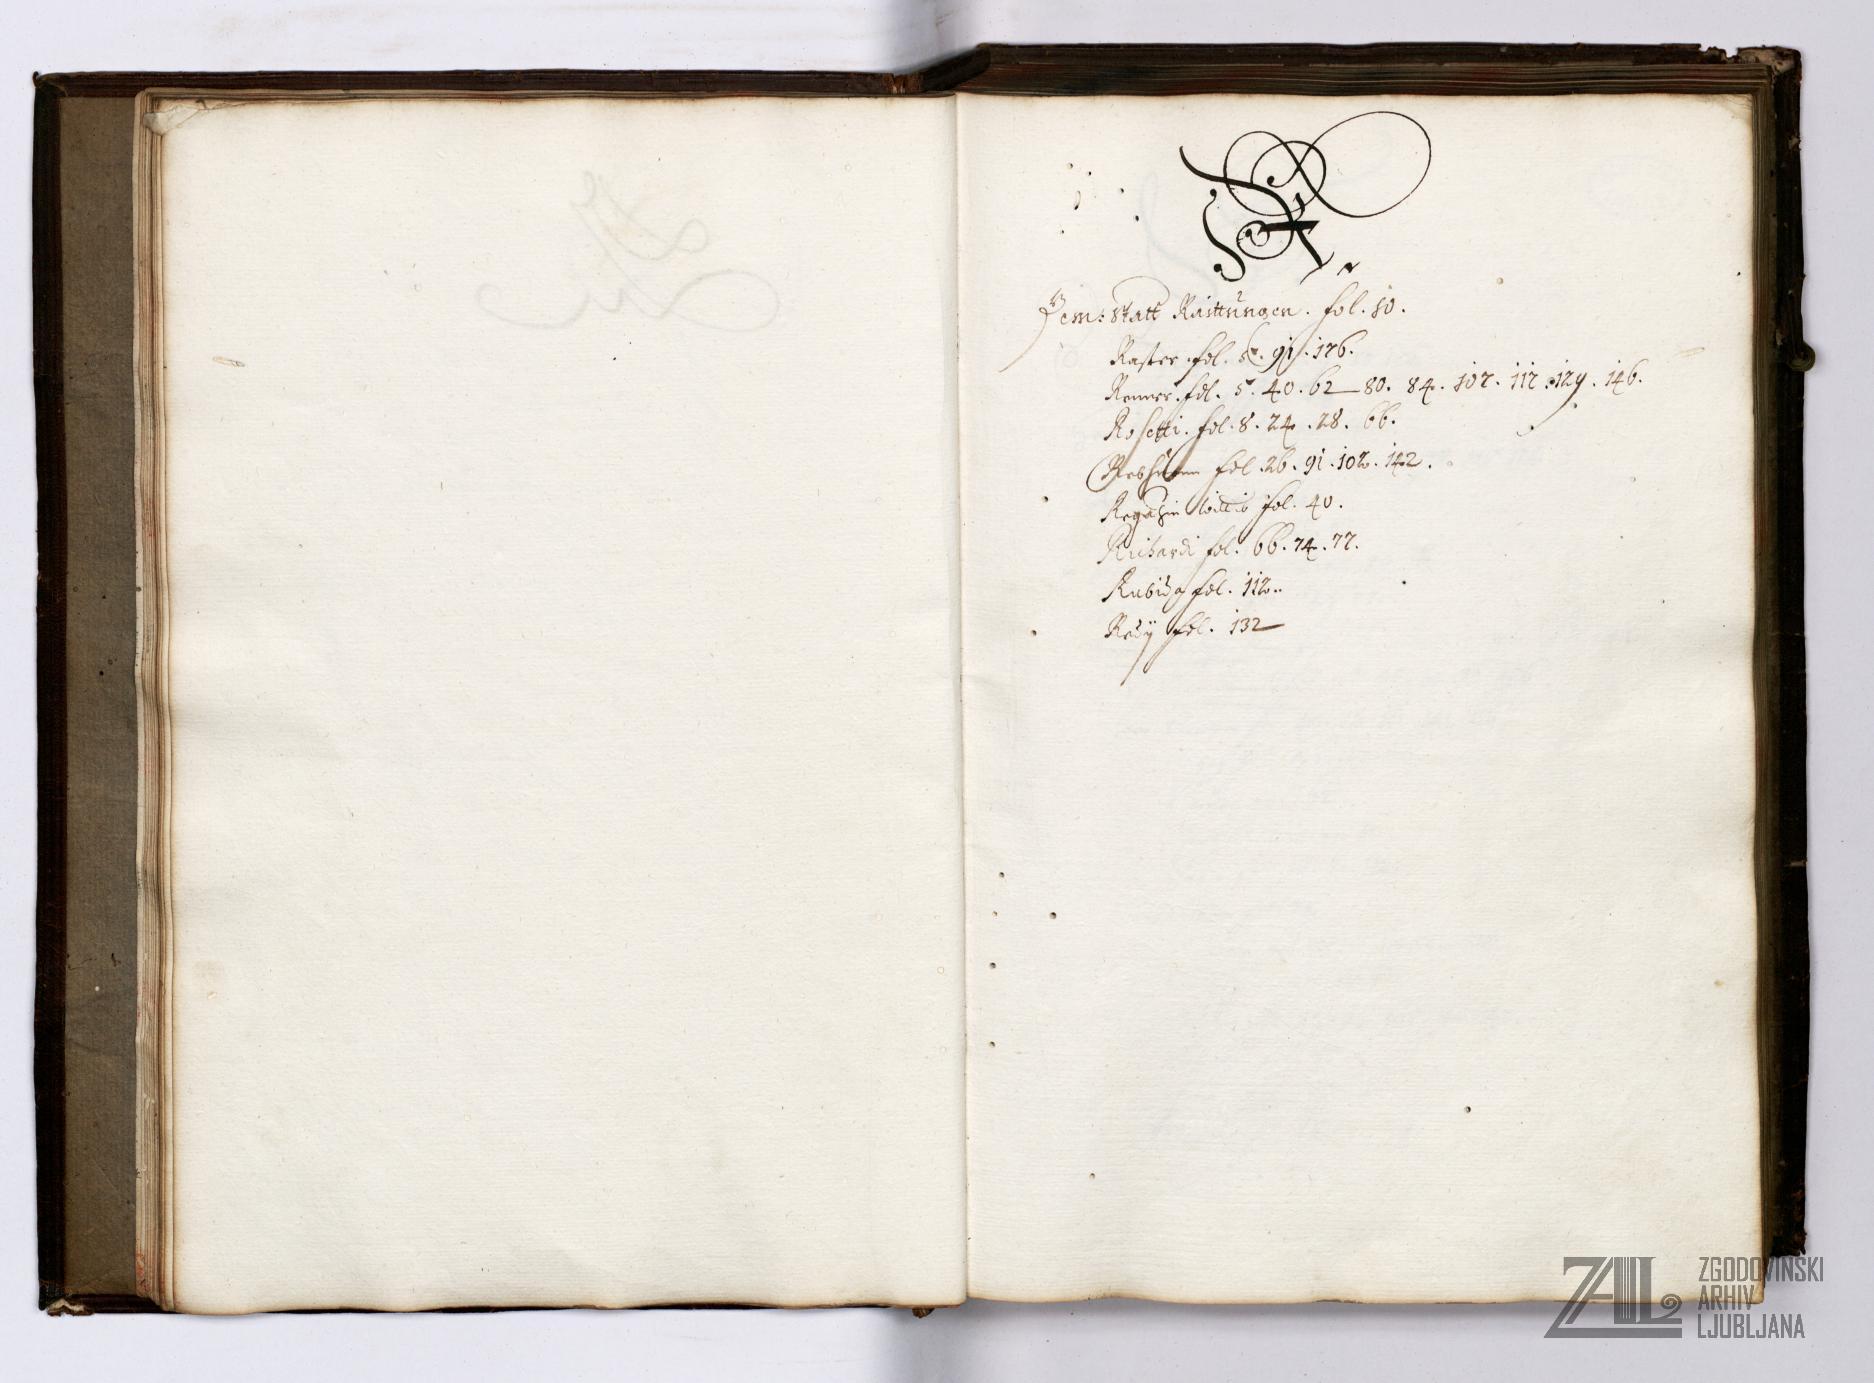 R
Gem: Statt Raittungen. fol. 10.
Raster fol. 91. 176.
Renner. fol. 5. 40. 62 80. 84. 107. 117. 129. 146.
Rosetti. fol. 8. 24. 28. 66.
fol. 26. 91. 102. 142.
fol. 40.
Richardi fol. 66. 74. 77.
Rubida fol. 112.
fol. 132
ZAL
ZGODOVINSKI
ARHIV
LJUBLJANA